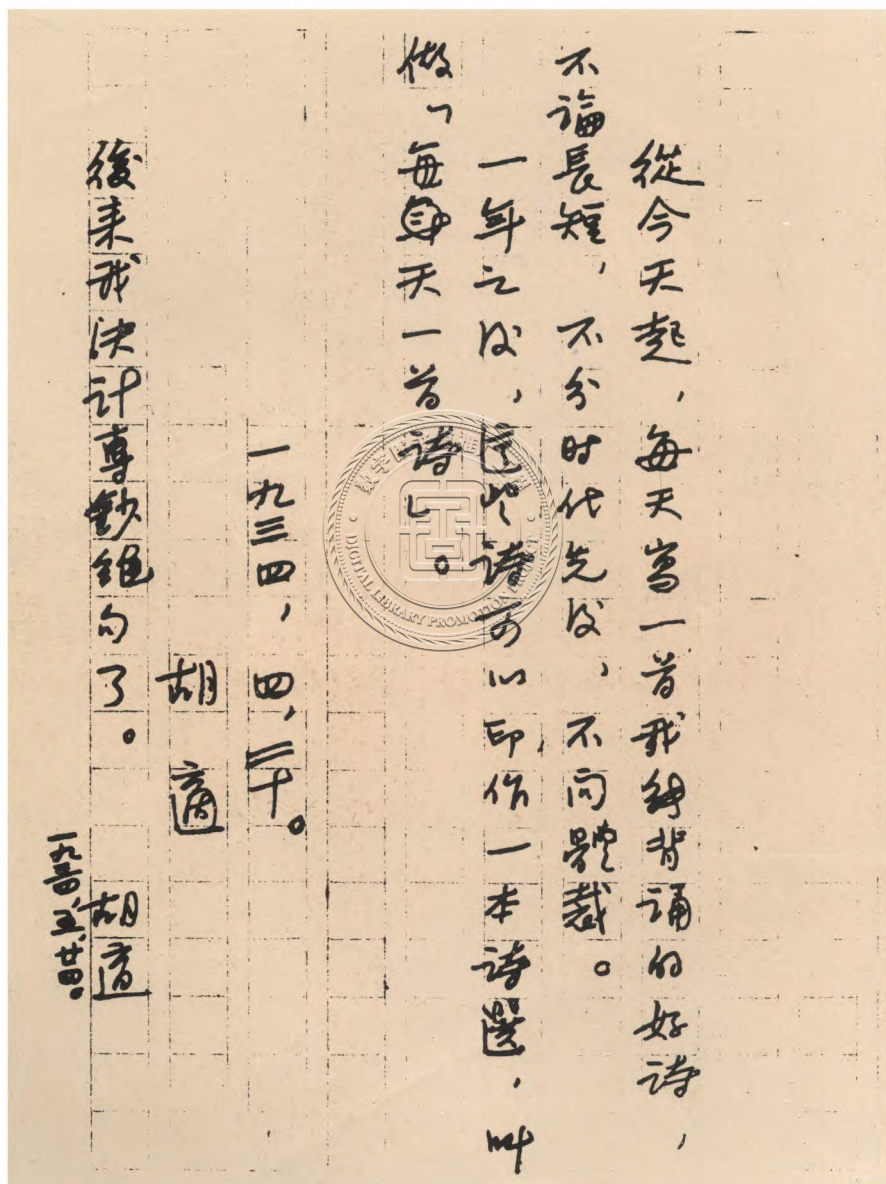 從今天起,每天寫一首我能背誦的好詩,
不論長短,不分时代先後,不问體裁。
一年之後,這些詩可以印作一本詩選,叫
做「每天一首詩」。
一九三四,四,二十。
胡適
後来我決計專鈔絕句了。 胡適
一九三四、五、廿四。
DIGITAL LIBRARY PROMOTION